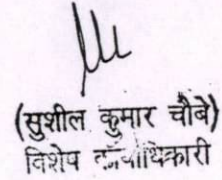 (सुशील कुमार चौबे)
विशेष कार्याधिकारी